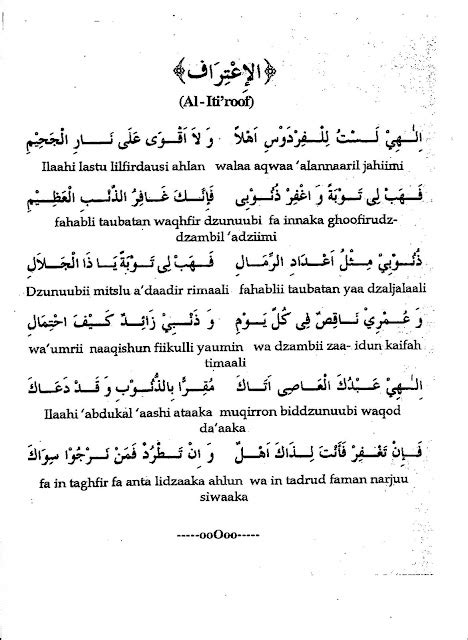 ﴿الإِعْتِرَاف﴾
(Al-Iti'roof)
اِلٰهِيْ لَسْتُ لِلْفِرْدَوْسِ اَهْلاً وَ لاَ اَقْوَى عَلَى نَارِ الْجَحِيْمِ
Ilaahi lastu lilfirdausi ahlan walaa aqwaa 'alannaaril jahiimi
فَهَبْ لِى تَوْبَةً وَ اغْفِرْ ذُنُوْبِى فَإِنَّكَ غَافِرُ الذَّنْبِ الْعَظِيْمِ
fahabli taubatan waqhfir dzunuubi fa innaka ghoofirudz-
dzambil 'adziimi
ذُنُوْبِيْ مِثْلُ اَعْدَادِ الرِّمَالِ فَهَبْ لِى تَوْبَةً يَا ذَا الْجَلاَلِ
Dzunuubii mitslu a'daadir rimaali fahablii taubatan yaa dzaljalaali
وَ عُمْرِيْ نَاقِصٌ فِى كُلِّ يَوْمٍ وَ ذَنْبِيْ زَائِدٌ كَيْفَ احْتِمَالِ
wa'umrii naaqishun fiikulli yaumin wa dzambii zaa-idun kaifah
timaali
اِلٰهِيْ عَبْدُكَ الْعَاصِى اَتَاكَ مُقِرًّا بِالذُّنُوْبِ وَ قَدْ دَعَاكَ
Ilaahi 'abdukal 'aashi ataaka muqirron biddzunuubi waqod
da'aaka
فَإِنْ تَغْفِرْ فَأَنْتَ لِذَاكَ اَهْلٌ وَ اِنْ تَطْرُدْ فَمَنْ نَرْجُوْا سِوَاكَ
fa in taghfir fa anta lidzaaka ahlun wa in tadrud faman narjuu
siwaaka
-----ooOoo-----